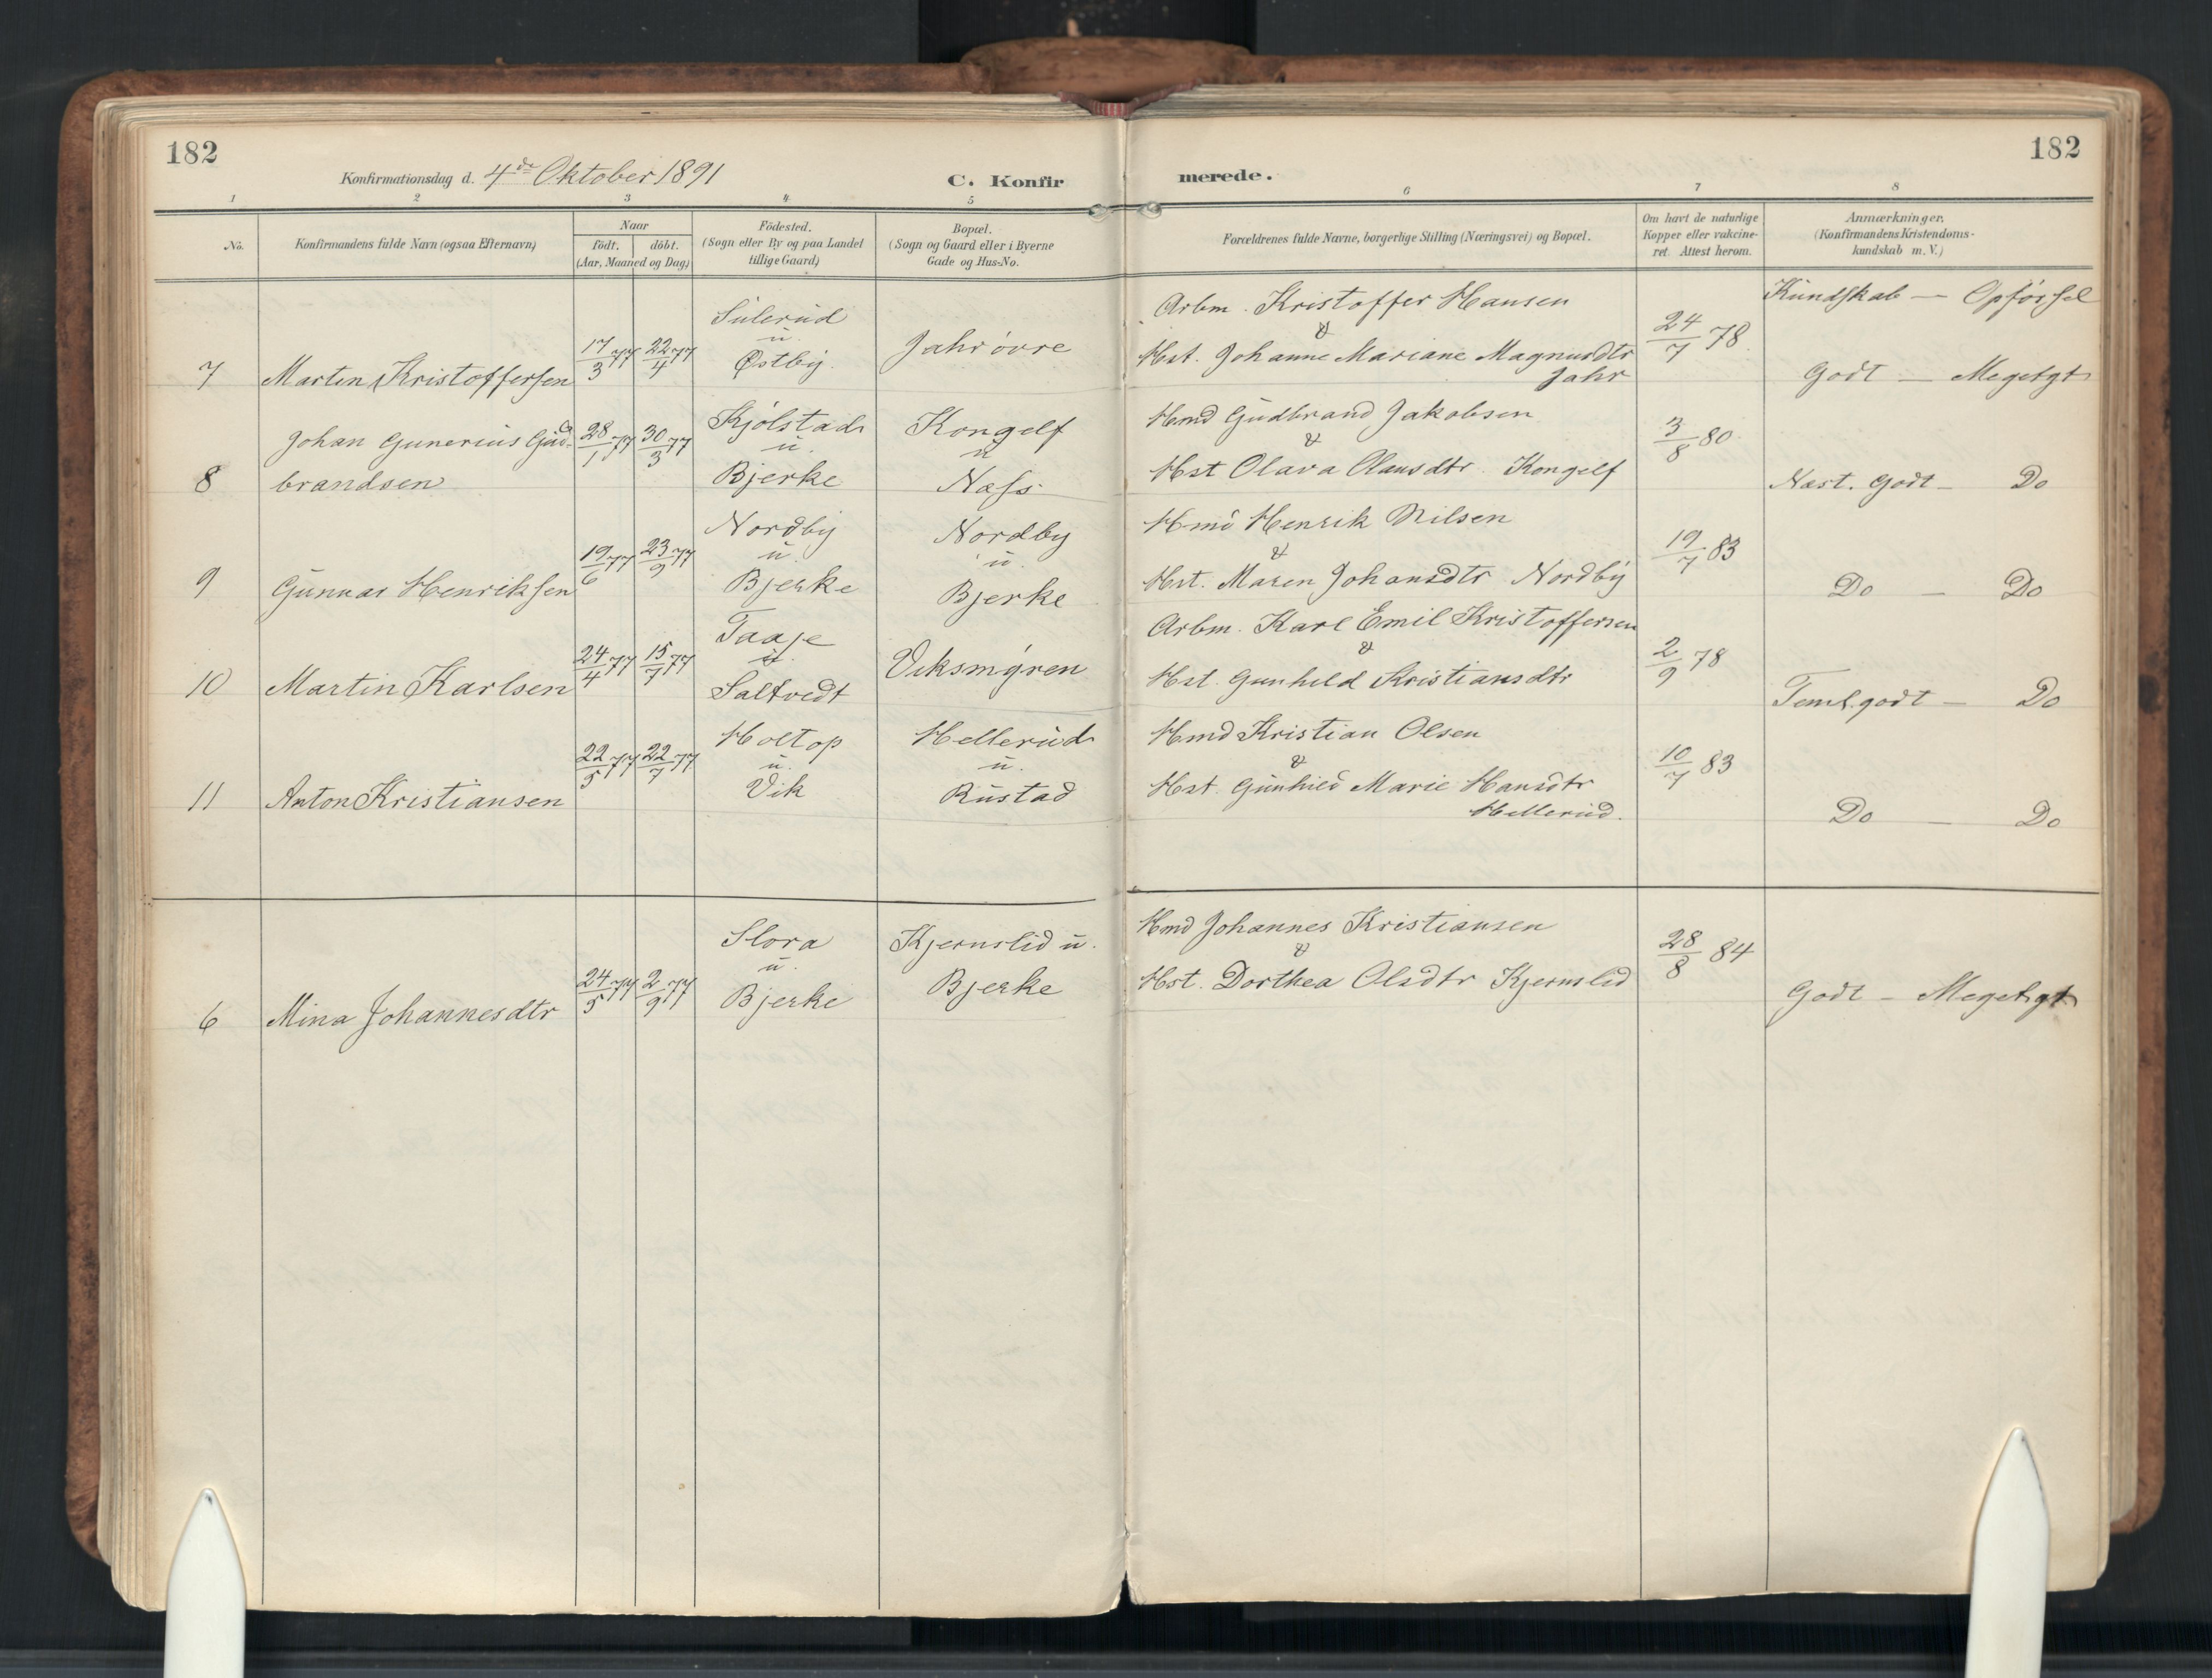 182
182
Konfirmationsdag d. 4de Oktober 1891
C. Konfirmerede.
1 2 3 4 5 6 7 8
No.
Konfirmandens fulde Navn (ogsaa Efternavn)
Naar
födt. döbt.
(Aar, Maaned og Dag)
Födested.
(Sogn eller By og paa Landet
tillige Gaard)
Bopæl.
(Sogn og Gaard eller i Byerne
Gade og Hus-No.
Forældrenes fulde Navne, borgerlige Stilling (Næringsvei) og Bopæl.
Om havt de naturlige
Kopper eller vakcine-
ret. Attest herom.
Anmærkninger.
(Konfirmandens Kristendoms-
kundskab m. V.)
Kundskab — Opførsel
Sulerud
u.
Østby.
Jahr övre
Arbm. Kristoffer Hansen
&
Hst. Johanne Mariane Magnusdtr
Jahr
7 Martin Kristoffersen 17/3 77 22/4 77 24/7 78. Godt — Megetgt
Johan Gunerius Gud-
8 brandsen 28/1 77 30/3 77
Kjölstad
u.
Bjerke
Kongelf
u
Næss
Hmd Gudbrand Jakobsen
&
Hst Olava Olausdtr. Kongelf
3/8 80. Næst. Godt — Do
9 Gunnar Henriksen 19/6 77 23/9 77
Nordby
u.
Bjerke
Nordby
u.
Bjerke
Hmd Henrik Nilsen
&
Hst. Maren Johansdtr Nordby
19/7 83 Do — Do
10 Martin Karlsen 24/4 77 15/7 77
Taaje
u.
Saltvedt
Viksmyren
Arbm. Karl Emil Kristoffersen
&
Hst. Gunhild Kristiansdtr
2/9 78 Teml. godt — Do
11 Anton Kristiansen 22/5 77 22/7 77
Holtop
u.
Vik
Hellerud
u.
Rustad
Hmd Kristian Olsen
&
Hst. Gunhild Marie Hansdtr
Hellerud.
10/7 83 Do — Do
6 Mina Johannesdtr 24/5 77 2/9 77
Slora
u.
Bjerke
Kjernslid u.
Bjerke
Hmd Johannes Kristiansen
&
Hst. Dorthea Olsdtr Kjernslid
28/8 84 Godt — Megetgt